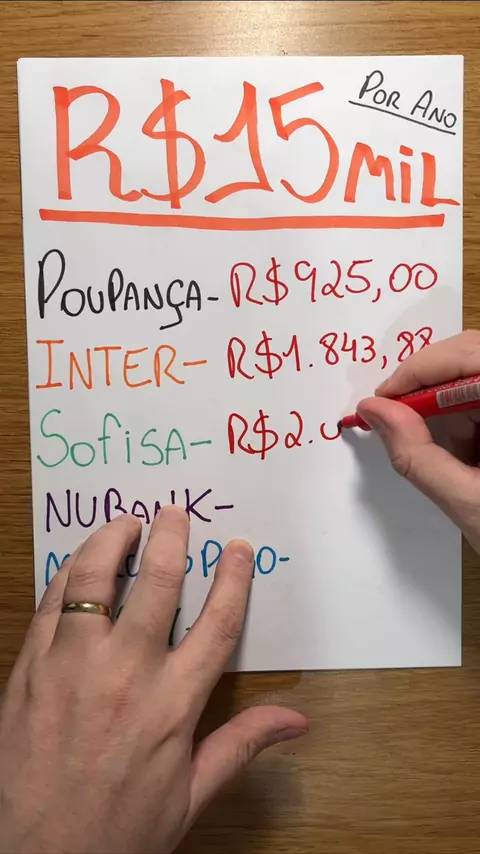 R$15 MIL
POR ANO
POUPANÇA- R$925,00
INTER- R$1.843,88
SOFISA- R$2.
NUBANK-